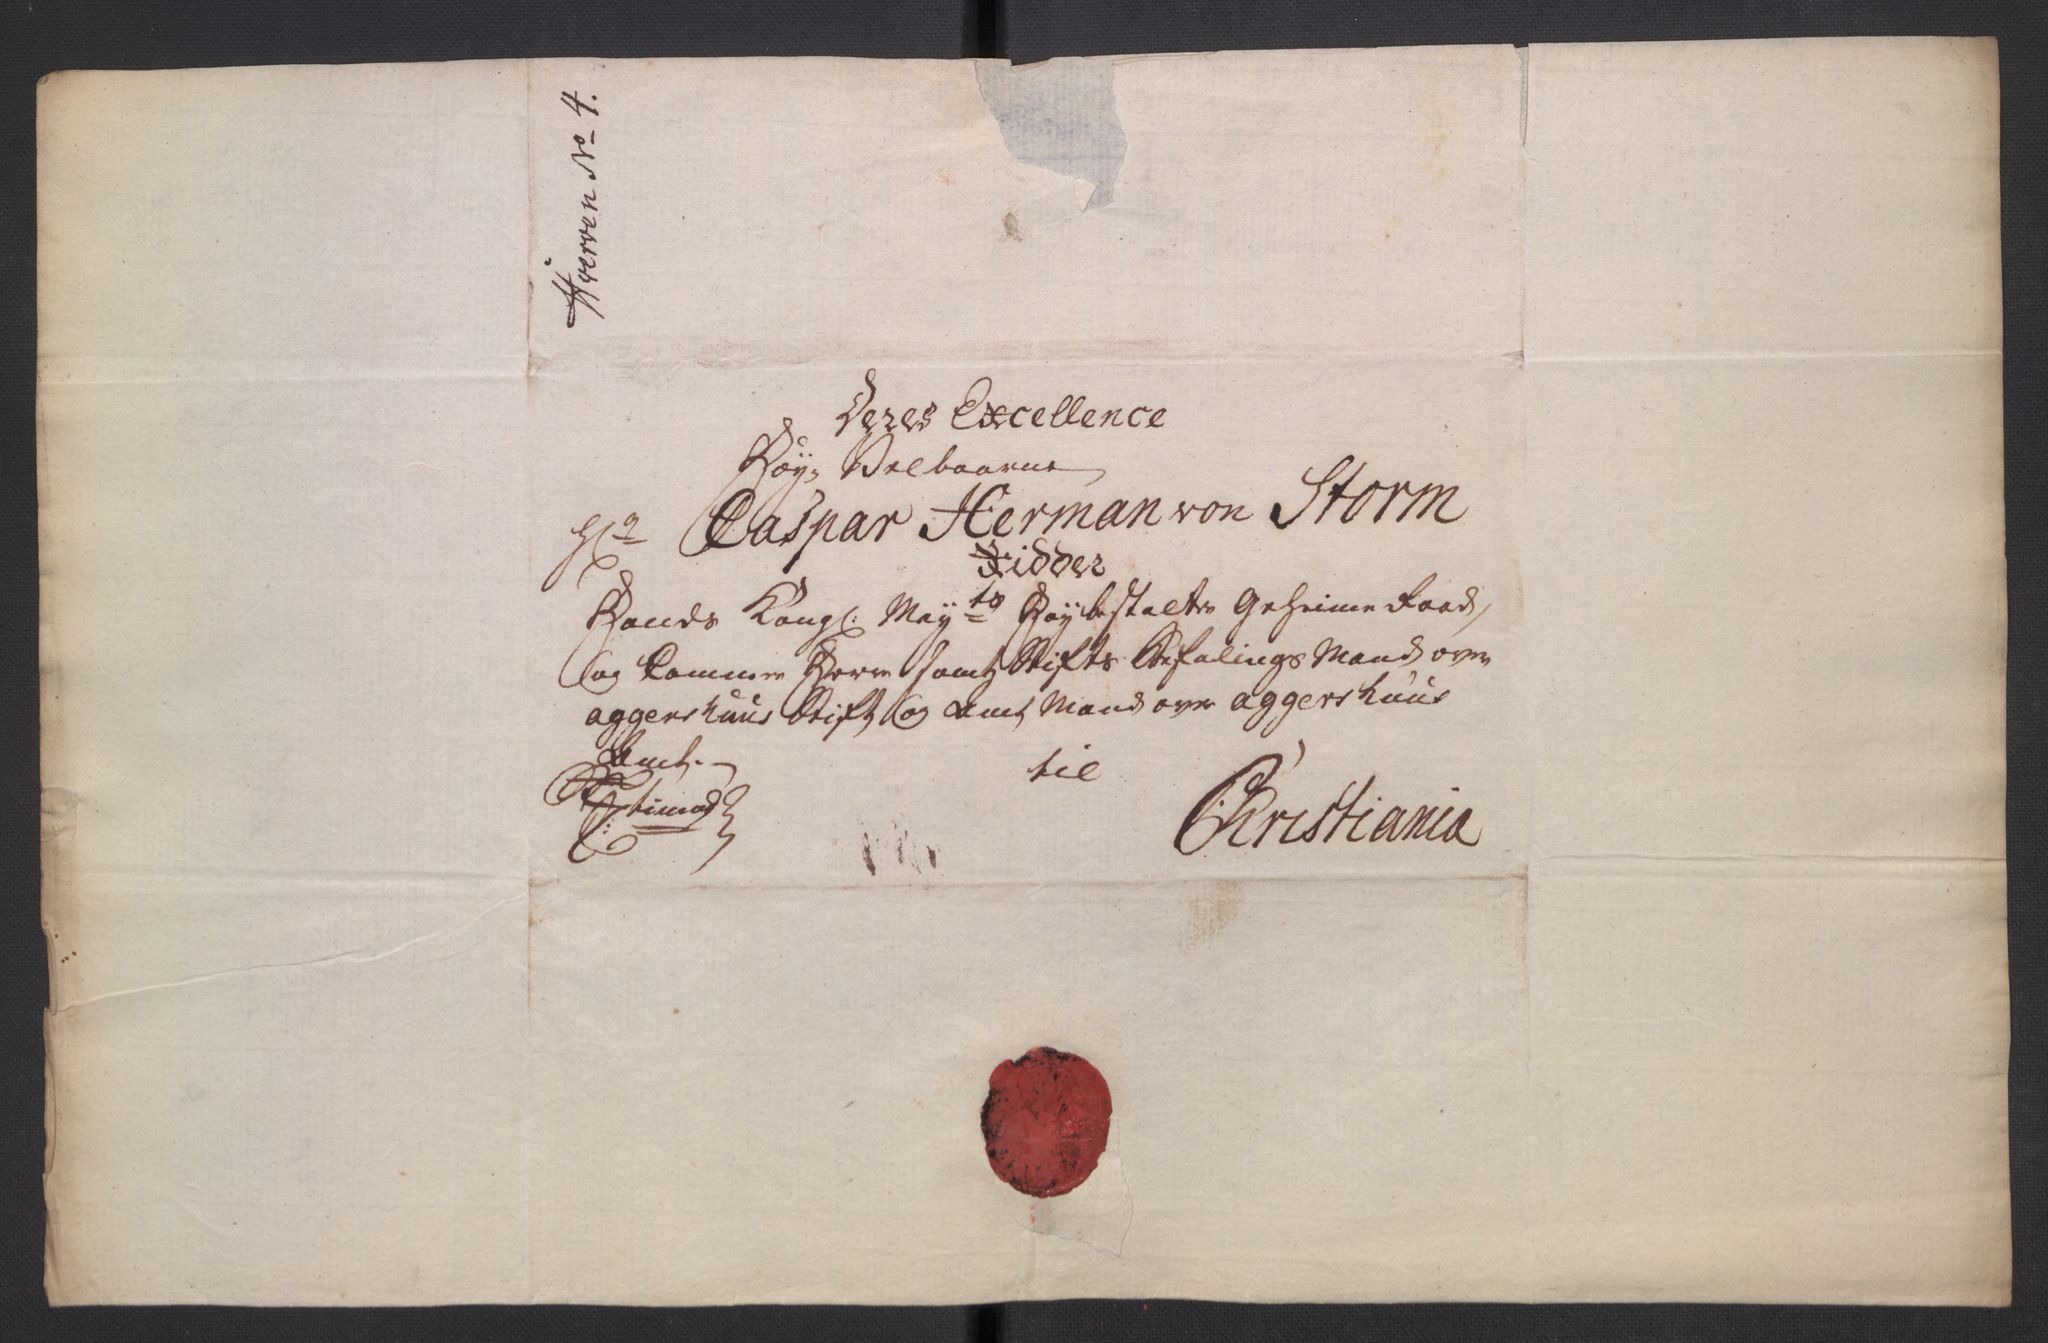 Hverven No 4.
Deres Excellence
Høy, Velbaarne
Hr Caspar Herman von Storm
Ridder
Hands Kongl: Mayts Høybestalter Geheime Raad,
og Cammer Herre samt Stifts Befalings Mand over
aggershuus Stift og Amt Mand over aggershuus
Amt.
til
Christiania